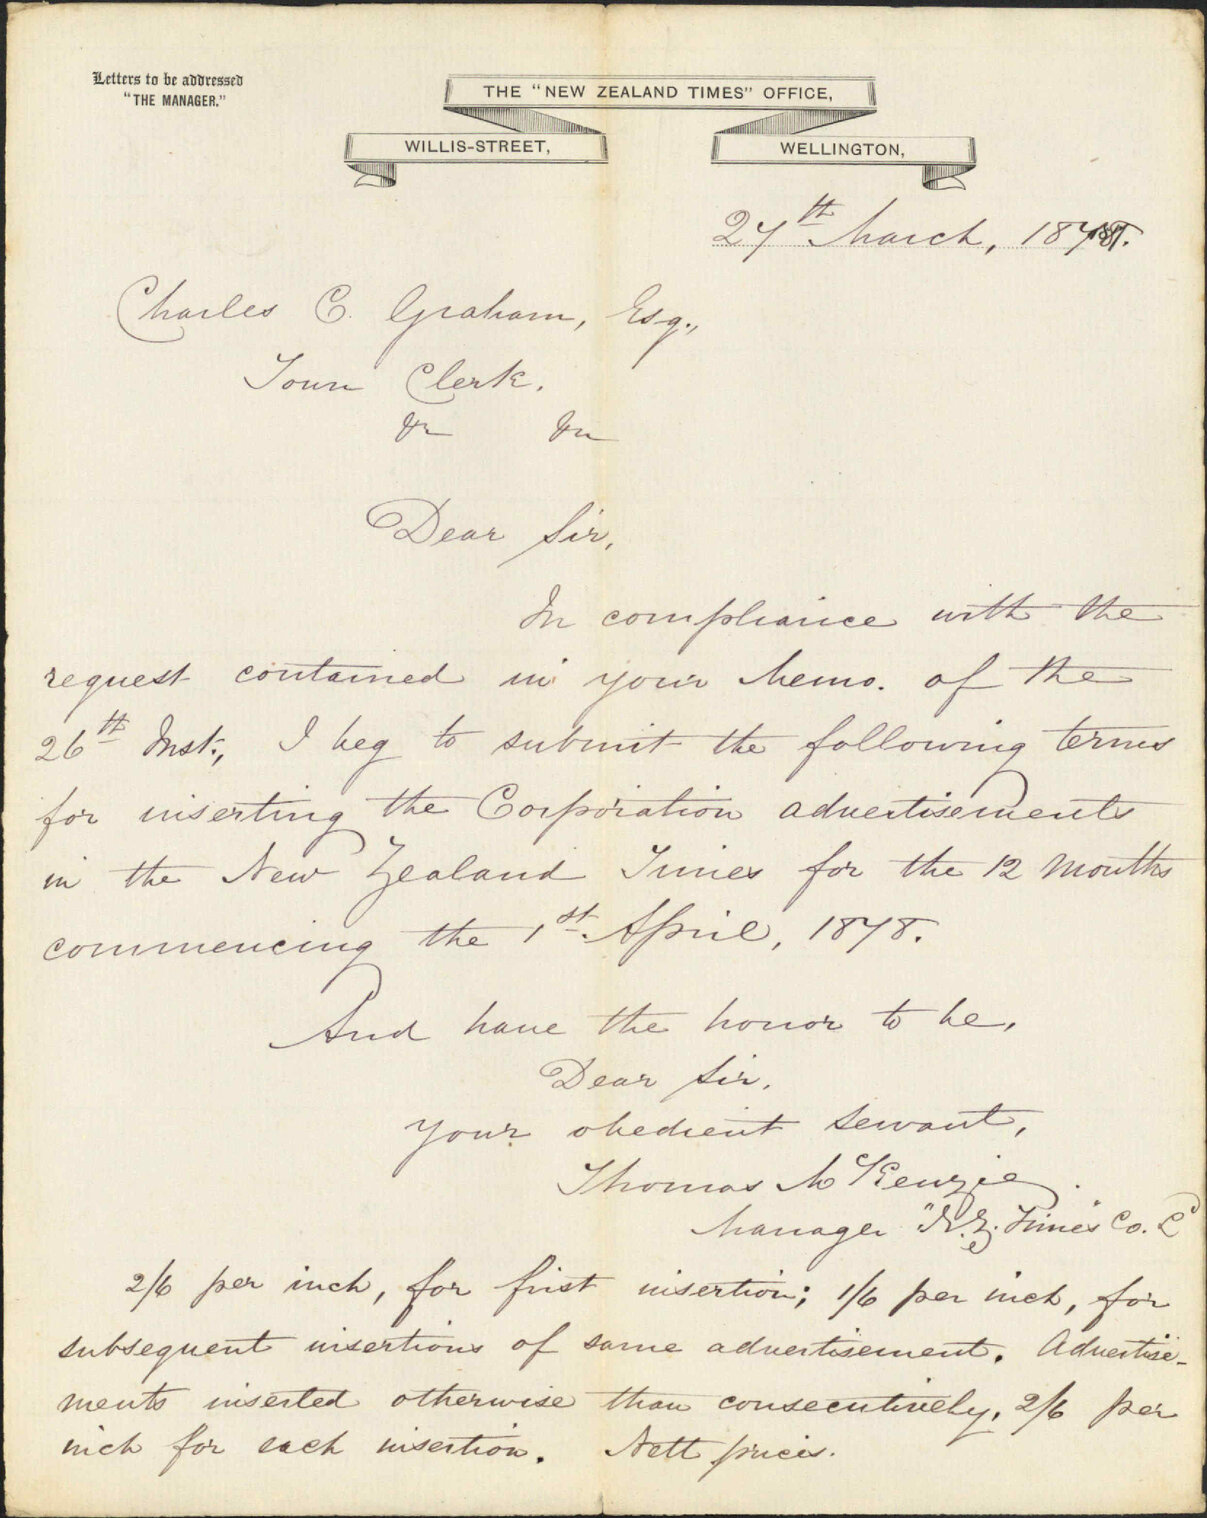 Letters to be addressed
"THE MANAGER."
THE "NEW ZEALAND TIMES" OFFICE,
WILLIS-STREET,
WELLINGTON,
27th March, 1878.
Charles C. Graham, Esq.,
Town Clerk.
&c &c
Dear Sir,
In compliance with the
request contained in your Memo. of the
26th Inst., I beg to submit the following terms
for inserting the Corporation advertisements
in the New Zealand Times for the 12 Months
commencing the 1st April, 1878.
And have the honor to be,
Dear Sir,
Your obedient Servant,
Thomas McKenzie.
Manager "N.Z. Times" Co. Ld
2/6 per inch, for first insertion; 1/6 per inch, for
subsequent insertions of same advertisement. Advertise-
ments inserted otherwise than consecutively, 2/6 per
inch for each insertion. Nett prices.